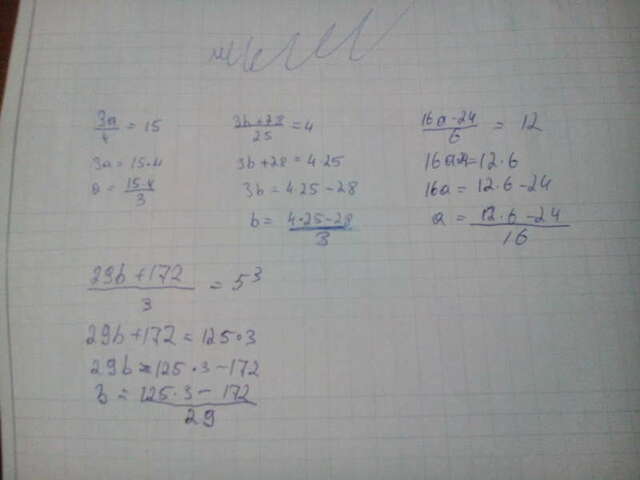 3a/4 = 15
3a = 15·4
a = 15·4/3
3b+28/25 = 4
3b+28 = 4·25
3b = 4·25-28
b = 4·25-28/3
16a-24/6 = 12
16a = 12·6-24
a = 12·6-24/16
29b+172/3 = 5³
29b+172 = 125·3
29b = 125·3-172
b = 125·3-172/29